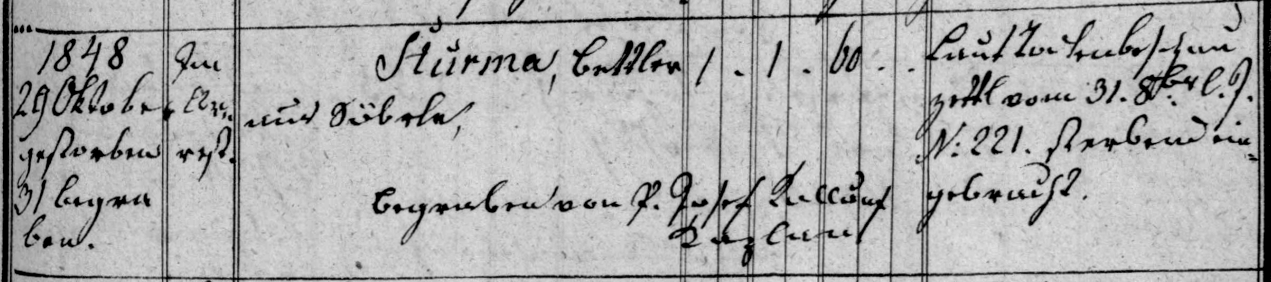 1848
29 Oktober
gestorben
31 begra
ben.
Im
Arrest.
Sturma, Bettler 1 . 1 . 60 . .
aus
begraben von P. Josef
Kaplan
Laut Todtenbeschau
zettl vom 31. 8br l. J.
N: 221. sterbend ein=
gebracht.